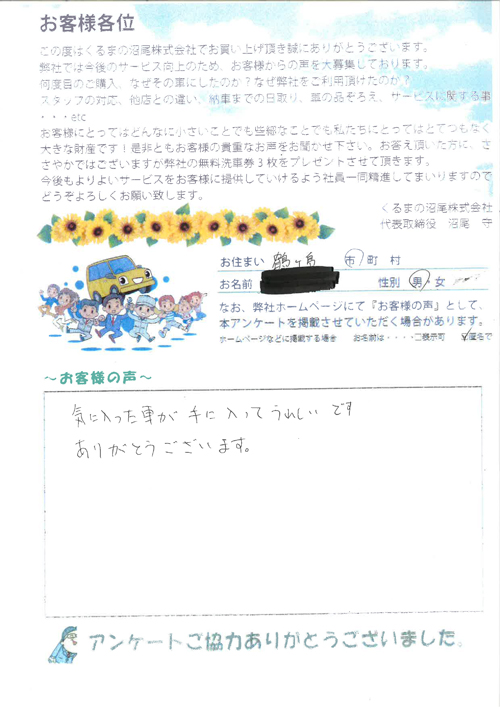 お客様各位
この度はくるまの沼尾株式会社でお買い上げ頂き誠にありがとうございます。
弊社では今後のサービス向上のため、お客様からの声を大募集しております。
何度目のご購入、なぜその車にしたのか?なぜ弊社をご利用頂けたのか?
スタッフの対応、他店との違い、納車までの日取り、車の品ぞろえ、サービスに関する事
・・・etc
お客様にとってはどんなに小さいことでも些細なことでも私たちにとってはとてつもなく
大きな財産です！是非ともお客様の貴重なお声をお聞かせ下さい。お答え頂いた方に、さ
さやかではございますが弊社の無料洗車券３枚をプレゼントさせて頂きます。
今後もよりよいサービスをお客様に提供していけるよう社員一同精進してまいりますので
どうぞよろしくお願い致します。
くるまの沼尾株式会社
代表取締役 沼尾 守
お住まい 鶴ヶ島 市 町 村
お名前 性別 男・女
なお、弊社ホームページにて『お客様の声』として、
本アンケートを掲載させていただく場合があります。
ホームページなどに掲載する場合 お名前は・・・・ 表示可 匿名で
～お客様の声～
気に入った車が手に入ってうれしいです
ありがとうございます。
アンケートご協力ありがとうございました。